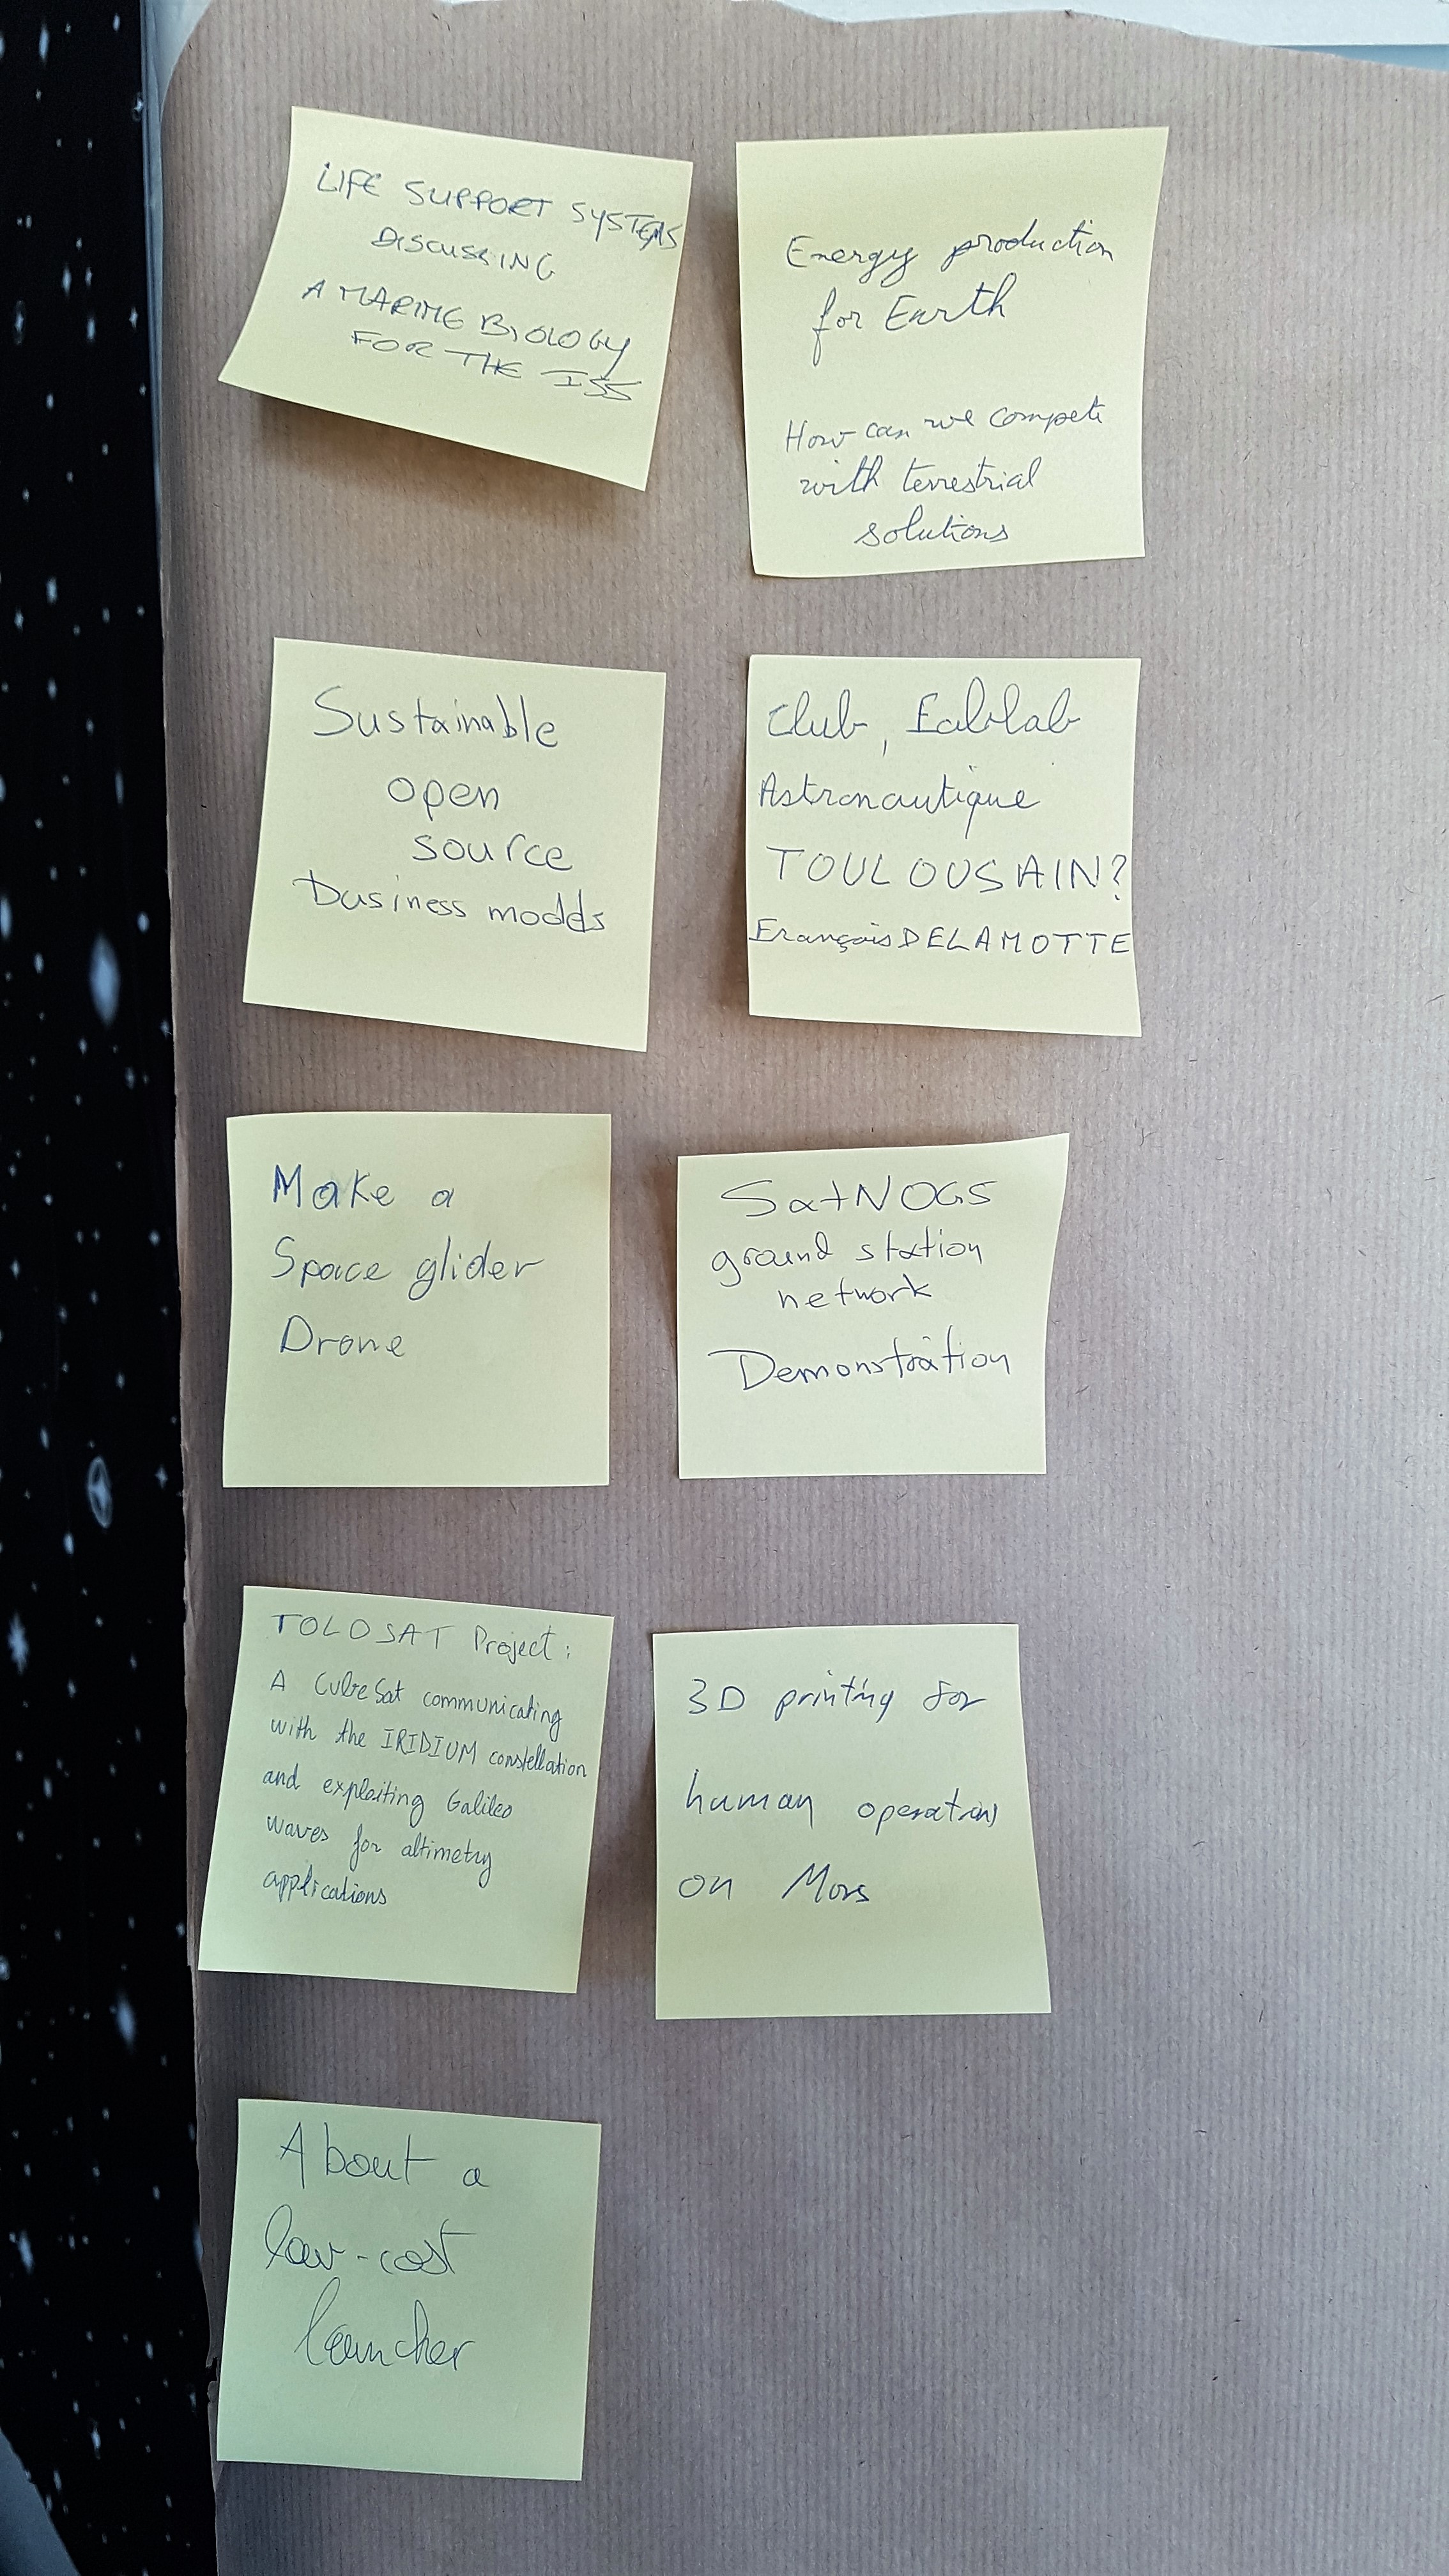 LIFE SUPPORT SYSTEMS
DISCUSSING
A MARINE BIOLOGY
FOR THE ISS
Energy production
for Earth
How can we compete
with terrestrial
solutions
Sustainable
open
source
business models
Club, Fablab
Astronautique
TOULOUSAIN?
François DELAMOTTE
Make a
Space glider
Drone
SatNOGS
ground station
network
Demonstration
TOLOSAT Project:
A CubeSat communicating
with the IRIDIUM constellation
and exploiting Galileo
waves for altimetry
applications
3D printing for
human operations
on Mars
About a
low-cost
launcher